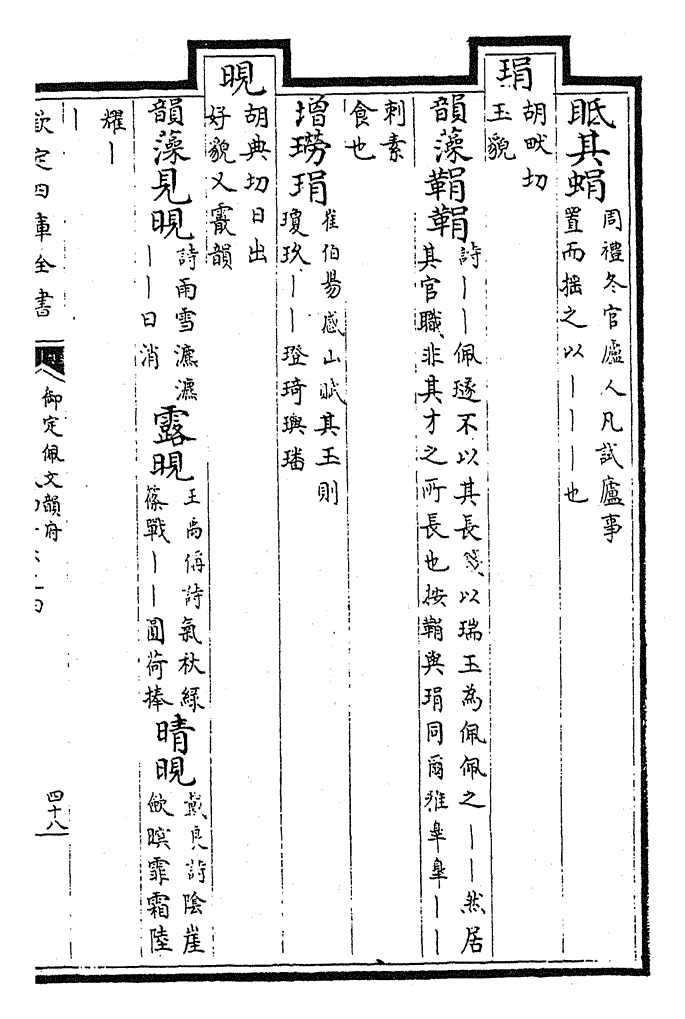 眡其蜎周禮冬官廬人凡試廬事
置而搖之以丨丨丨也
琄
胡畎切
玉貌
韻藻鞙鞙詩丨丨佩璲不以其長箋以瑞玉為佩佩之丨丨然居
其官職非其才之所長也按鞙與琄同爾雅臯臯丨丨
刺素
食也
增璓琄崔伯昜感山賦其玉則
瓊玖丨丨璒琦璵璠
晛
胡典切日出
好貌又霰韻
韻藻見晛詩雨雪瀌瀌
丨丨日消
露晛王禹偁詩氣秋緑
篠戰丨丨圓荷捧
晴晛戴良詩陰崖
飲暝霏霜陸
耀丨
丨
欽定四庫全書
御定佩文韻府
四十八